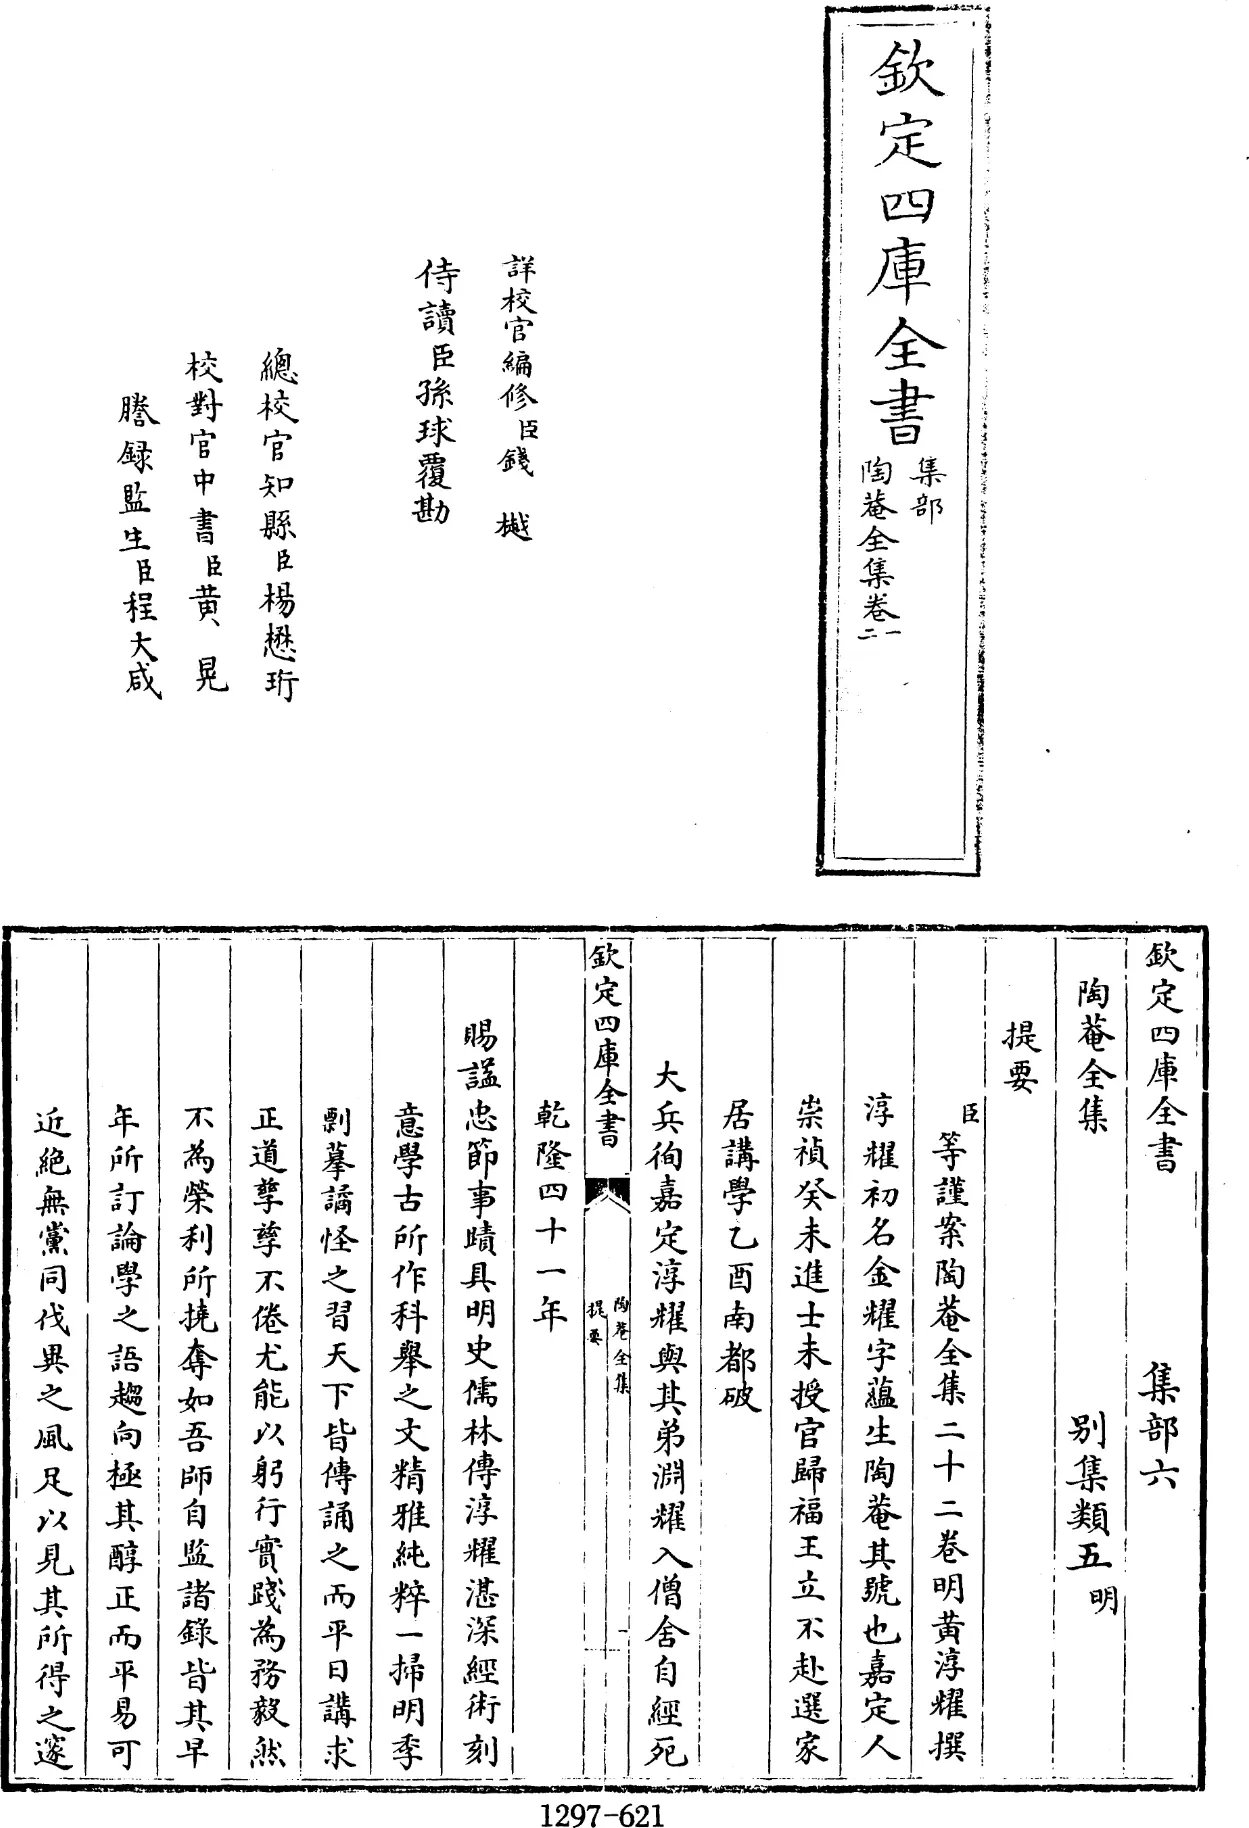 欽定四庫全書
集部
陶菴全集卷一
二
詳校官編修臣錢樾
侍讀臣孫球覆勘
總校官知縣臣楊懋珩
校對官中書臣黃晃
謄錄監生臣程大咸
欽定四庫全書 集部六
陶菴全集 別集類五明
提要
臣等謹案陶菴全集二十二卷明黃淳耀撰
淳耀初名金耀字蘊生陶菴其號也嘉定人
崇禎癸未進士未授官歸福王立不赴選家
居講學乙酉南都破
大兵徇嘉定淳耀與其弟淵耀入僧舍自經死
欽定四庫全書
陶菴全集
提要
一
乾隆四十一年
賜諡忠節事蹟具明史儒林傳淳耀湛深經術刻
意學古所作科舉之文精雅純粹一掃明季
剽摹譎怪之習天下皆傳誦之而平日講求
正道孳孳不倦尤能以躬行實踐為務毅然
不為榮利所撓奪如吾師自監諸錄皆其早
年所訂論學之語趨向極其醇正而平易可
近絕無黨同伐異之風足以見其所得之邃
1297-621